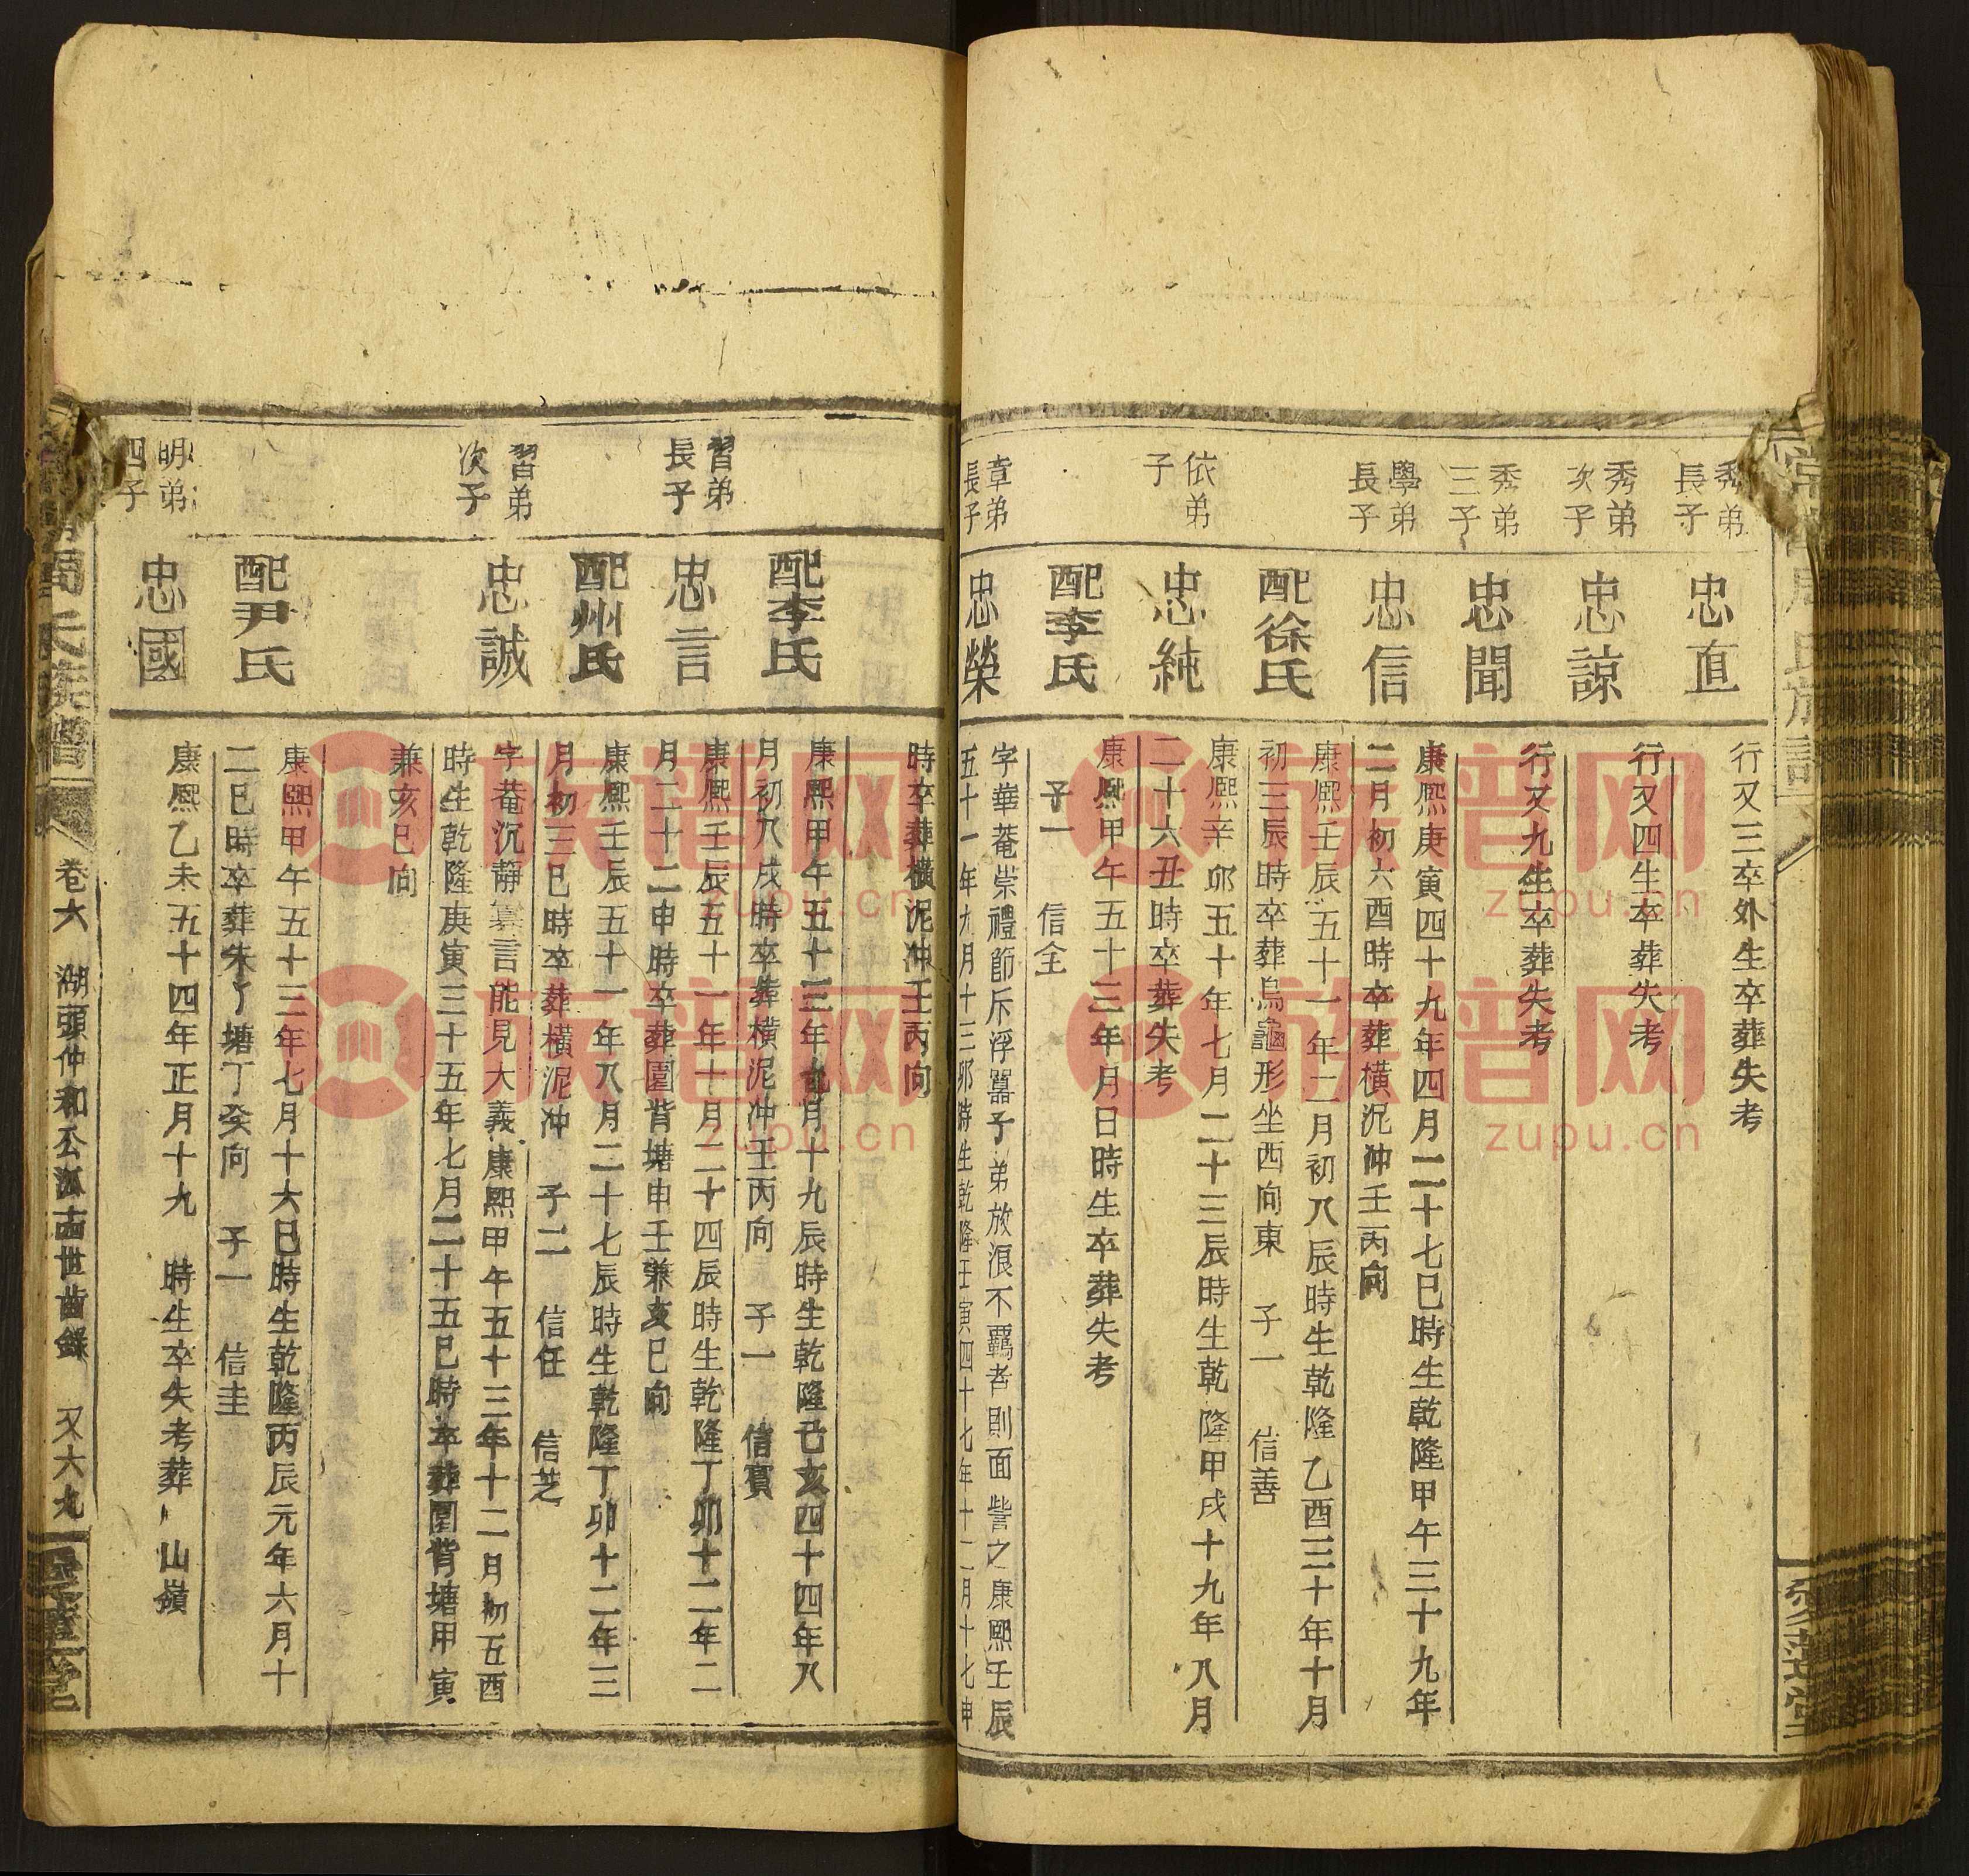 秀弟
長子
忠直
行又三卒外生卒葬失考
秀弟
次子
忠諒
行又四生卒葬失考
秀弟
三子
忠聞
行又九生卒葬失考
學弟
長子
忠信
康熙庚寅四十九年四月二十七巳時生乾隆甲午三十九年
二月初六酉時卒葬横泥冲壬丙向
配徐氏
康熙壬辰五十一年二月初八辰時生乾隆乙酉三十年十月
初三辰時卒葬烏龜形坐西向東 子一 信善
依弟
子
忠純
康熙辛卯五十年七月二十三辰時生乾隆甲戌十九年八月
二十六丑時卒葬失考
配李氏
康熙甲午五十三年月日時生卒葬失考
子一 信全
章弟
長子
忠榮
字華菴崇禮節斥浮囂子弟放浪不羈者則面訾之康熙壬辰
五十一年九月十三卯時生乾隆壬寅四十七年十二月十七申
時卒葬横泥冲壬丙向
配李氏
康熙甲午五十三年九月十九辰時生乾隆己亥四十四年八
月初八戌時卒葬横泥冲壬丙向 子一 信賓
習弟
長子
忠言
康熙壬辰五十一年十月二十四辰時生乾隆丁卯十二年二
月二十二申時卒葬圍背塘申壬兼亥巳向
配州氏
康熙壬辰五十一年八月二十七辰時生乾隆丁卯十二年三
月初三巳時卒葬横泥冲 子二 信任 信芝
習弟
次子
忠誠
字菴沉靜寡言能見大義康熙甲午五十三年十二月初五酉
時生乾隆庚寅三十五年七月二十五巳時卒葬圍背塘甲寅
兼亥巳向
配尹氏
康熙甲午五十三年七月十六巳時生乾隆丙辰元年六月十
二巳時卒葬朱了塘丁癸向 子一 信圭
明弟
四子
忠國
康熙乙未五十四年正月十九 時生卒失考葬 山嶺
周氏族譜
卷六 湖頭仲和公派十四世齒錄 又六九
愛蓮堂
愛蓮堂
族谱网
zupu.cn
族谱网
zupu.cn
族谱网
zupu.cn
族谱网
zupu.cn